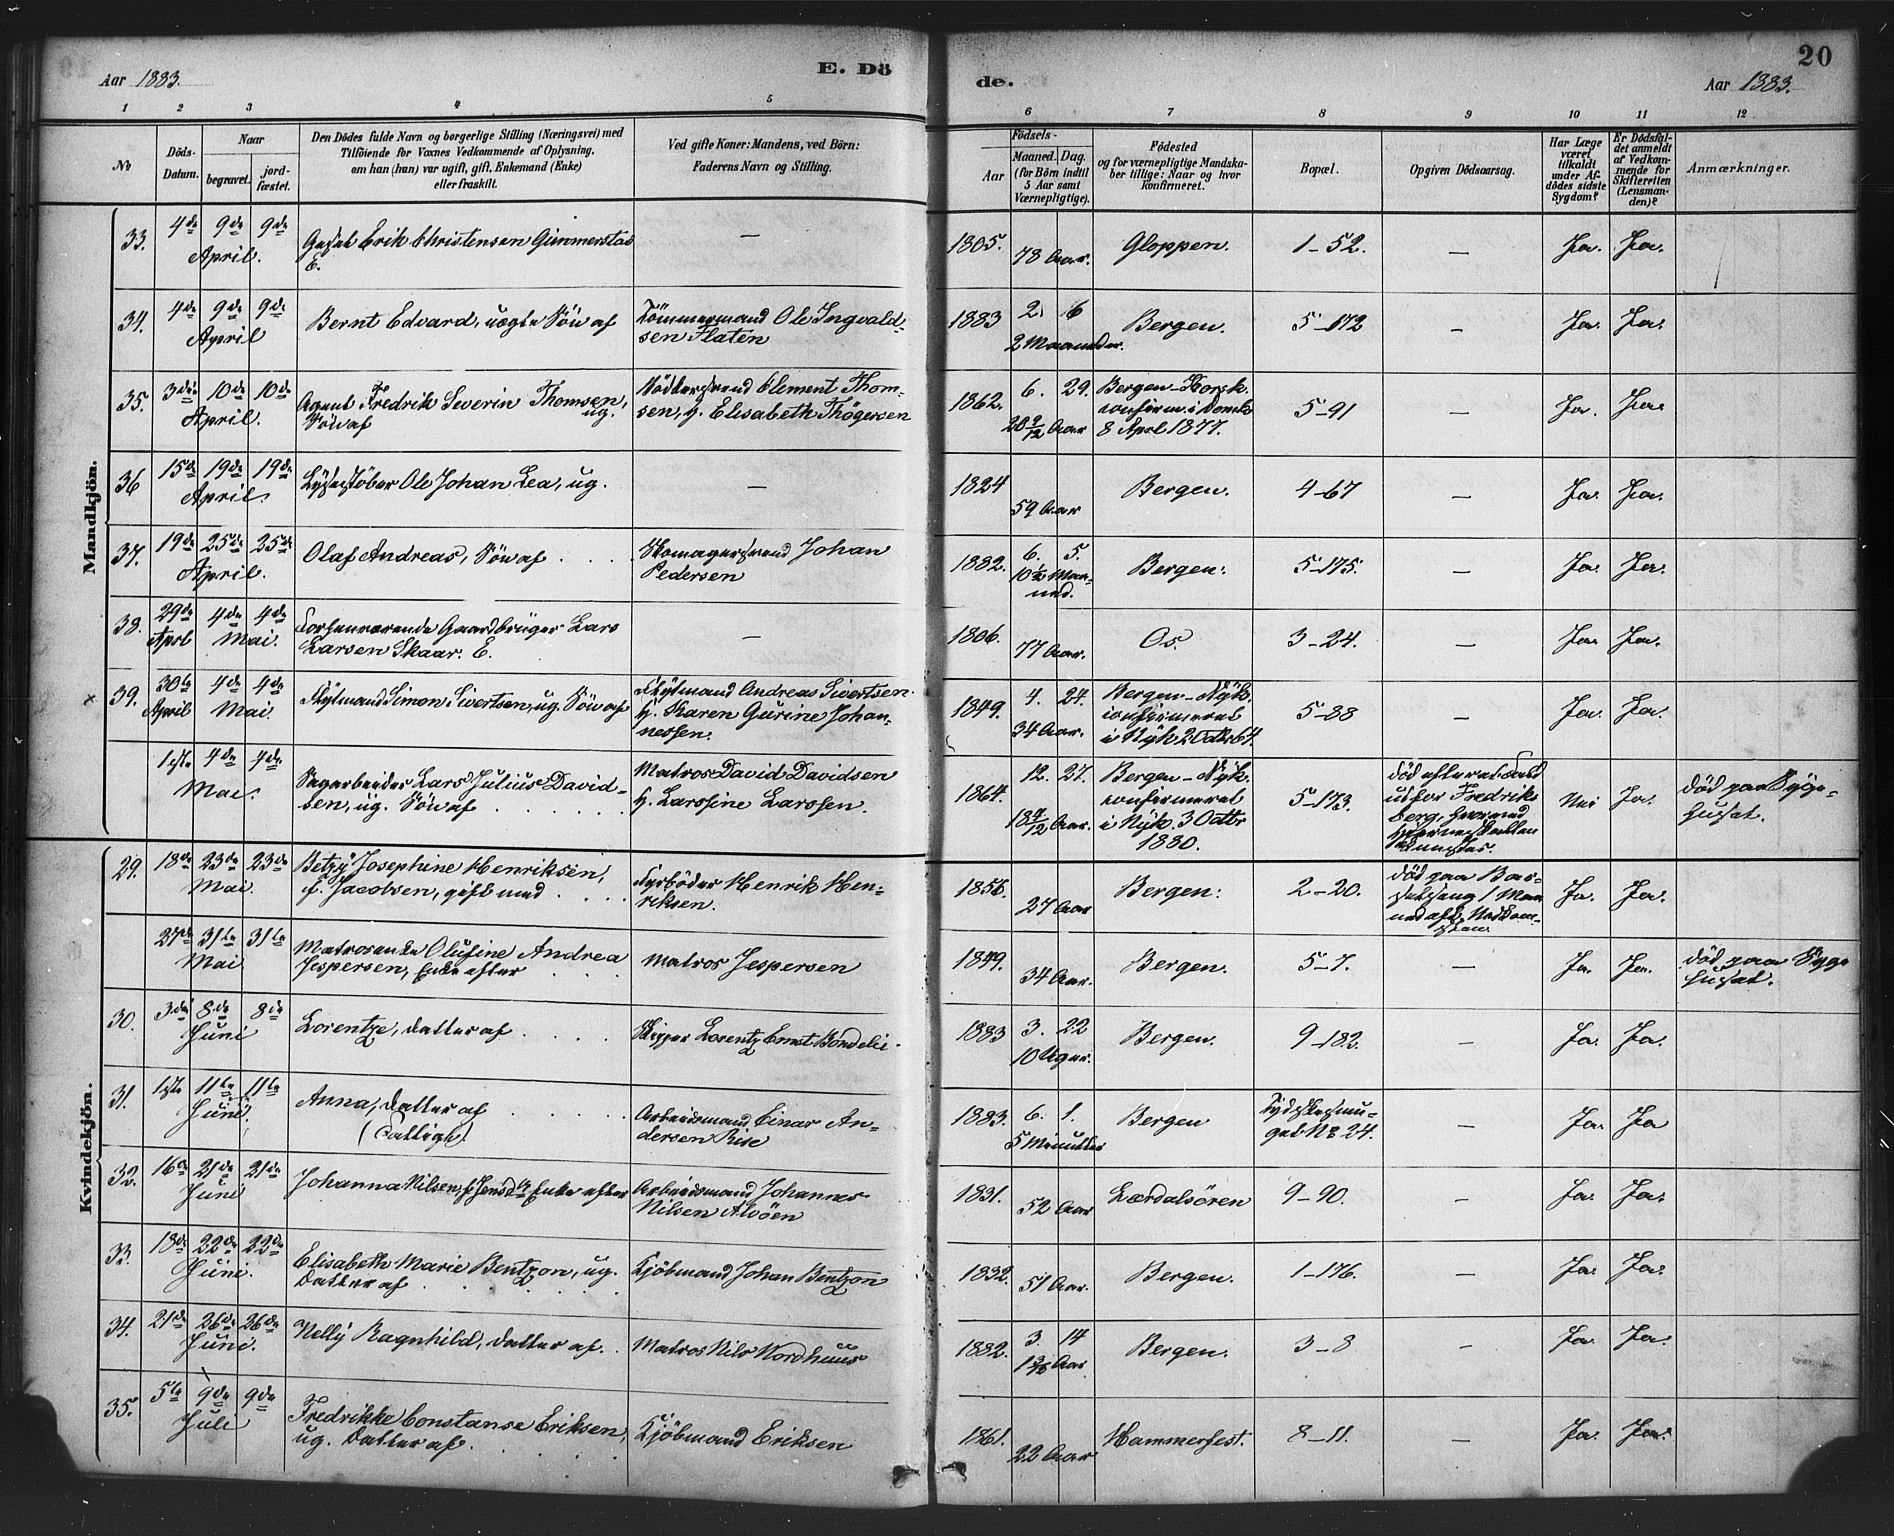 20
Aar 1883.
E. Döde.
Aar 1883.
1 2 3 4 5 6 7 8 9 10 11 12
No
Döds-Datum.
Naar
begravet.
jord-fæstet.
Den Dödes fulde Navn og borgerlige Stilling (Næringsvei) med
Tilföiende for Voxnes Vedkommende af Oplysning,
om han (hun) var ugift, gift, Enkemand (Enke)
eller fraskilt.
Ved gifte Koner: Mandens, ved Börn:
Faderens Navn og Stilling.
Födsels-
Aar
Maaned. Dag.
(for Börn indtil
5 Aar samt
Værnepligtige).
Födested
og for værnepligtige Mandska-
ber tillige: Naar og hvor
konfirmeret.
Bopæl.
Opgiven Dödsaarsag.
Har Læge
været
tilkaldt
under Af-
dödes sidste
Sygdom?
Er Dödsfal-
det anmeldt
af Vedkom-
mende for
Skifteretten
(Lensman-
den)?
Anmærkninger.
Mandkjön.
33. 4de 9de 9de April. Erik Christensen Gimmerstad E. — 1805. 78 Aar. Gloppen. 1-52. — Ja. Ja.
34. 4de 9de 9de April Bernt Edvard, uægte Sön af Tömmermand Ole Ingvald-
sen Flaten 1883 2. 6 2 Maaneder. Bergen. 5-172 — Ja. Ja.
35. 3die 10de 10de April. Agent Fredrik Severin Thomsen, ug.
Sön af Clement Thom-
sen, h. Elisabeth Thögersen 1862. 6. 29. 20 9/12 Aar Bergen-Korsk.
confirm. i Domk.
8 Aprl 1877. 5-91 — Ja. Ja.
36 15de 19de 19de April. Lysestöber Ole Johan Lea, ug. — 1824 59 Aar Bergen. 4-67 — Ja. Ja.
37. 19de 25de 25de April. Olaf Andreas, Sön af Skomagersvend Johan
Pedersen 1882. 6. 5. 10½ Maa-
ned. Bergen. 5-175. — Ja. Ja.
38. 29de Aprl 4de 4de Mai. Forhenværende Gaardbruger Lars
Larsen Skaar. E. — 1806. 77 Aar. Os. 3-24. — Ja. Ja.
x 39. 30te April 4de 4de Mai. Flytmand Simon Sivertsen, ug. Sön af Flytmand Andreas Sivertsen.
h. Karen Gurine Johan-
nessen. 1849. 4. 24. 34 Aar. Bergen-Nyk.
confirmeret
i Nyk. 2 Octbr 64. 5-88 — Ja. Ja.
1ste 4de 4de Mai. Lars Julius David-
sen, ug. Sön af Matros David Davidsen
h. Larsine Larssen. 1864. 12. 27. 18 4/12 Aar. Bergen-Nyk.
confirmeret
i Nyk. 3 Octbr
1880. 5-173. Död efter et Fald
udfor Fredriks
berg, hvorved
Hjerneskallen
knustes. Nei Ja. Död paa Syge-
huset.
Kvindekjön.
29. 18de 23de 23de Mai. Betzy Josephine Henriksen,
f. Jacobsen, gift med Fyrböder Henrik Hen-
riksen. 1856. 27 Aar Bergen. 2-20. Död paa Bar-
selseng 1 Maa
ned Ja. Ja.
27de 31te 31te Mai Matrosenke Olufine Andrea
Jespersen, Enke efter Matros Jespersen 1849. 34 Aar. Bergen. 5-7. — Ja. Ja. Död paa Syge
huset.
30. 3die 8de 8de Juni Lorentze, Datter af Skipper Lorentz Ernst 1883 3. 22 10 Uger. Bergen. 9-182. — Ja. Ja.
31. 1ste 11te 11te Juni. Anna, Datter af
(Fattigh.) Arbeidsmand Einar An-
dersen Rise 1883. 6. 1. 5 Minutter Bergen Tydskesmu-
get No 24. — Ja. Ja
32. 16de 21de 21de Juni Johanna Nilsen, f. Jensdtr Enke efter Arbeidsmand Johannes
Nilsen Alvöen 1831. 52 Aar Lærdalsören 9-90. — Ja. Ja.
33. 18de 22de 22de Juni. Elisabeth Marie Bentzon, ug.
Datter af Kjöbmand Johan Bentzon 1832. 51 Aar. Bergen. 1-176. — Ja. Ja.
34. 21de 26de 26de Juni. Nelly Ragnhild, Datter af Matros Nils Nordhuus 1882. 3. 14 1 3/12 Aar Bergen. 3-8 — Ja. Ja.
35. 5te 9de 9de Juli Fredrikke Constanse Eriksen,
ug. Datter af Kjöbmand Eriksen 1861. 22 Aar Hammerfest. 8-11. — Ja. Ja.